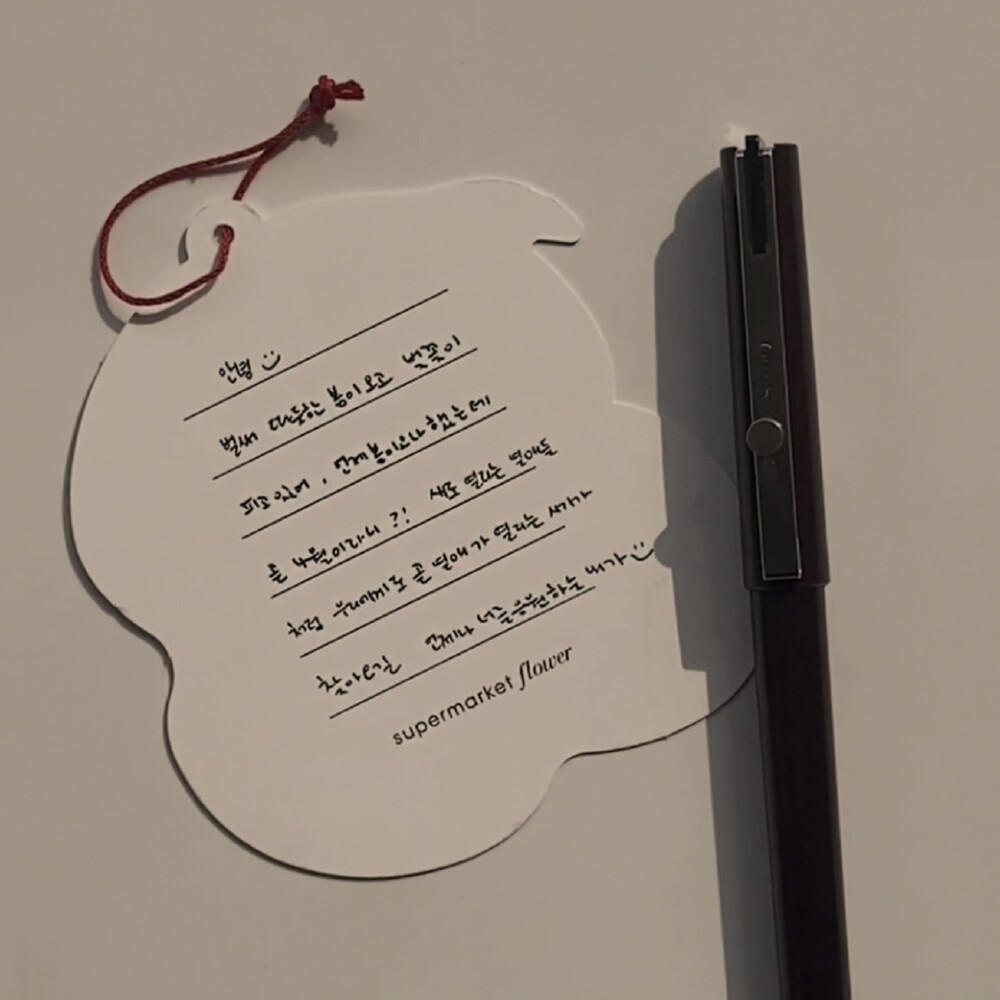 안녕 :)
벌써 따뜻한 봄이 오고 벚꽃이
피고 있어, 언제 봄이 오나 했는데
곧 4월이라니 ?! 새로 열리는 열매들
처럼 우리에게도 곧 열매가 열리는 시기가
찾아오길 언제나 너를 응원하는 내가 :)
supermarket flower